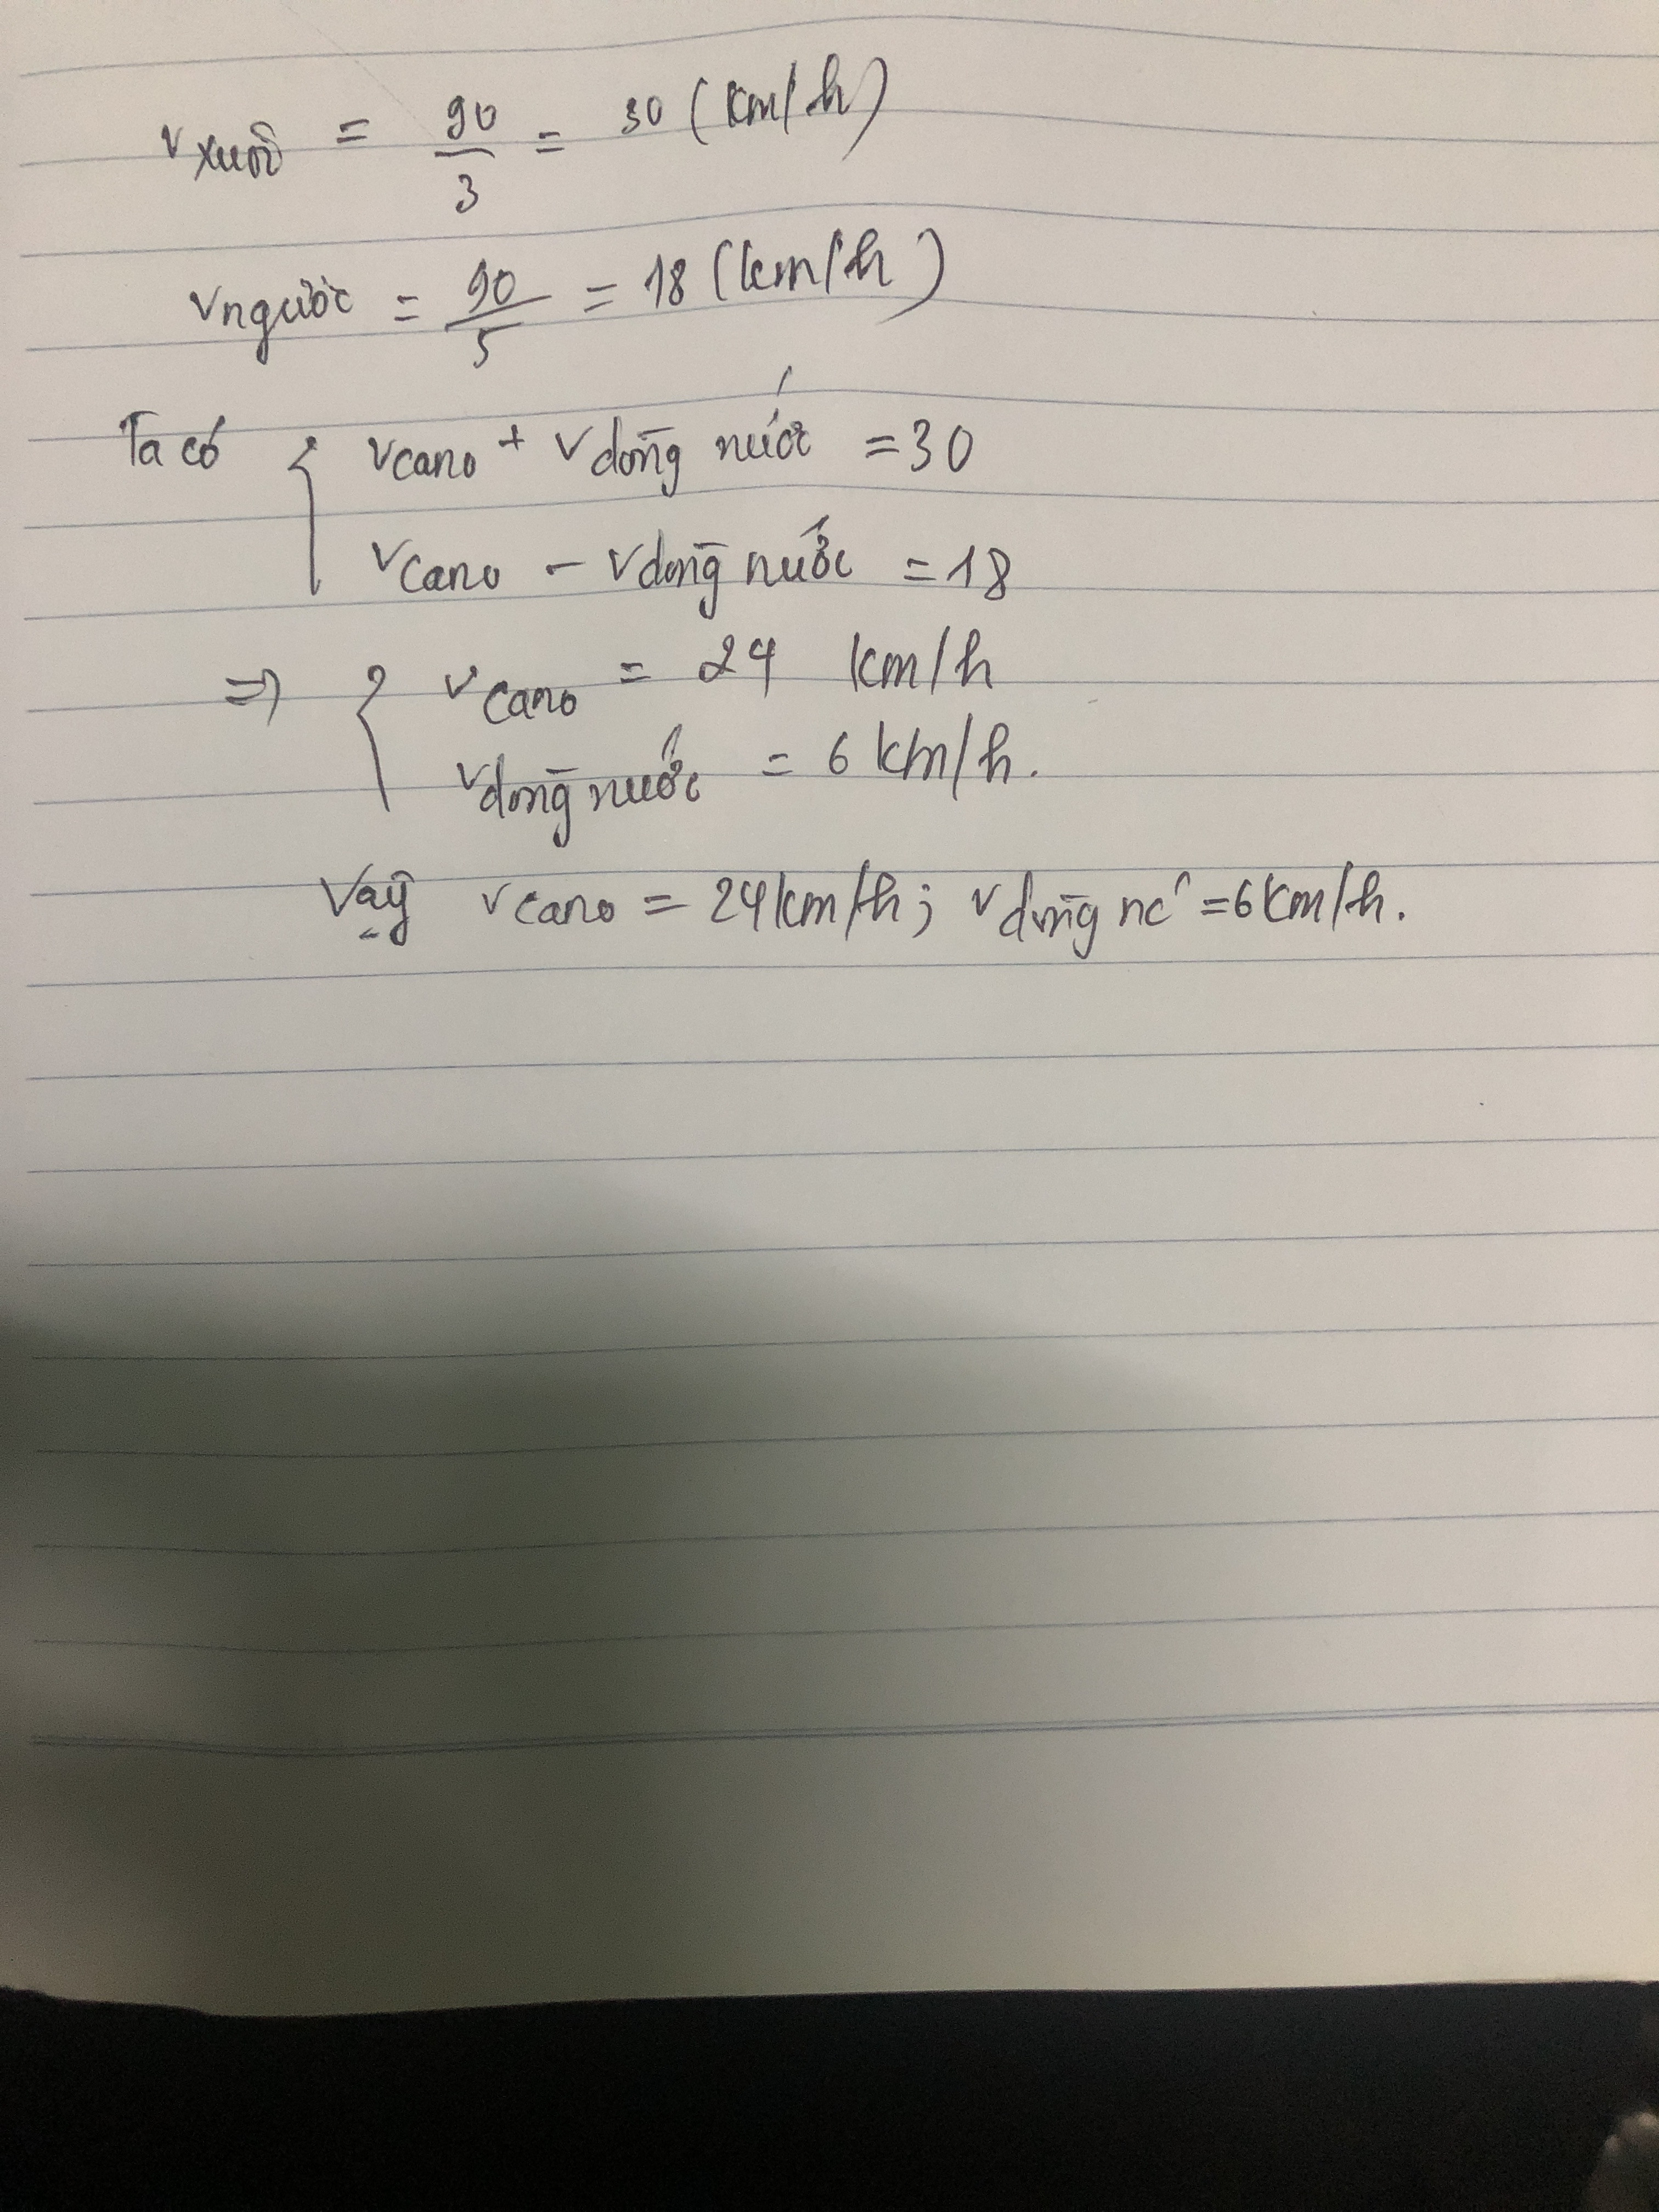 v xuôi = 90/3 = 30 (km/h)
v ngược = 90/5 = 18 (km/h)
Ta có { v cano + v dòng nước = 30
v cano - v dòng nước = 18
=> { v cano = 24 km/h
v dòng nước = 6 km/h.
Vậy v cano = 24 km/h; v dòng nc' = 6 km/h.